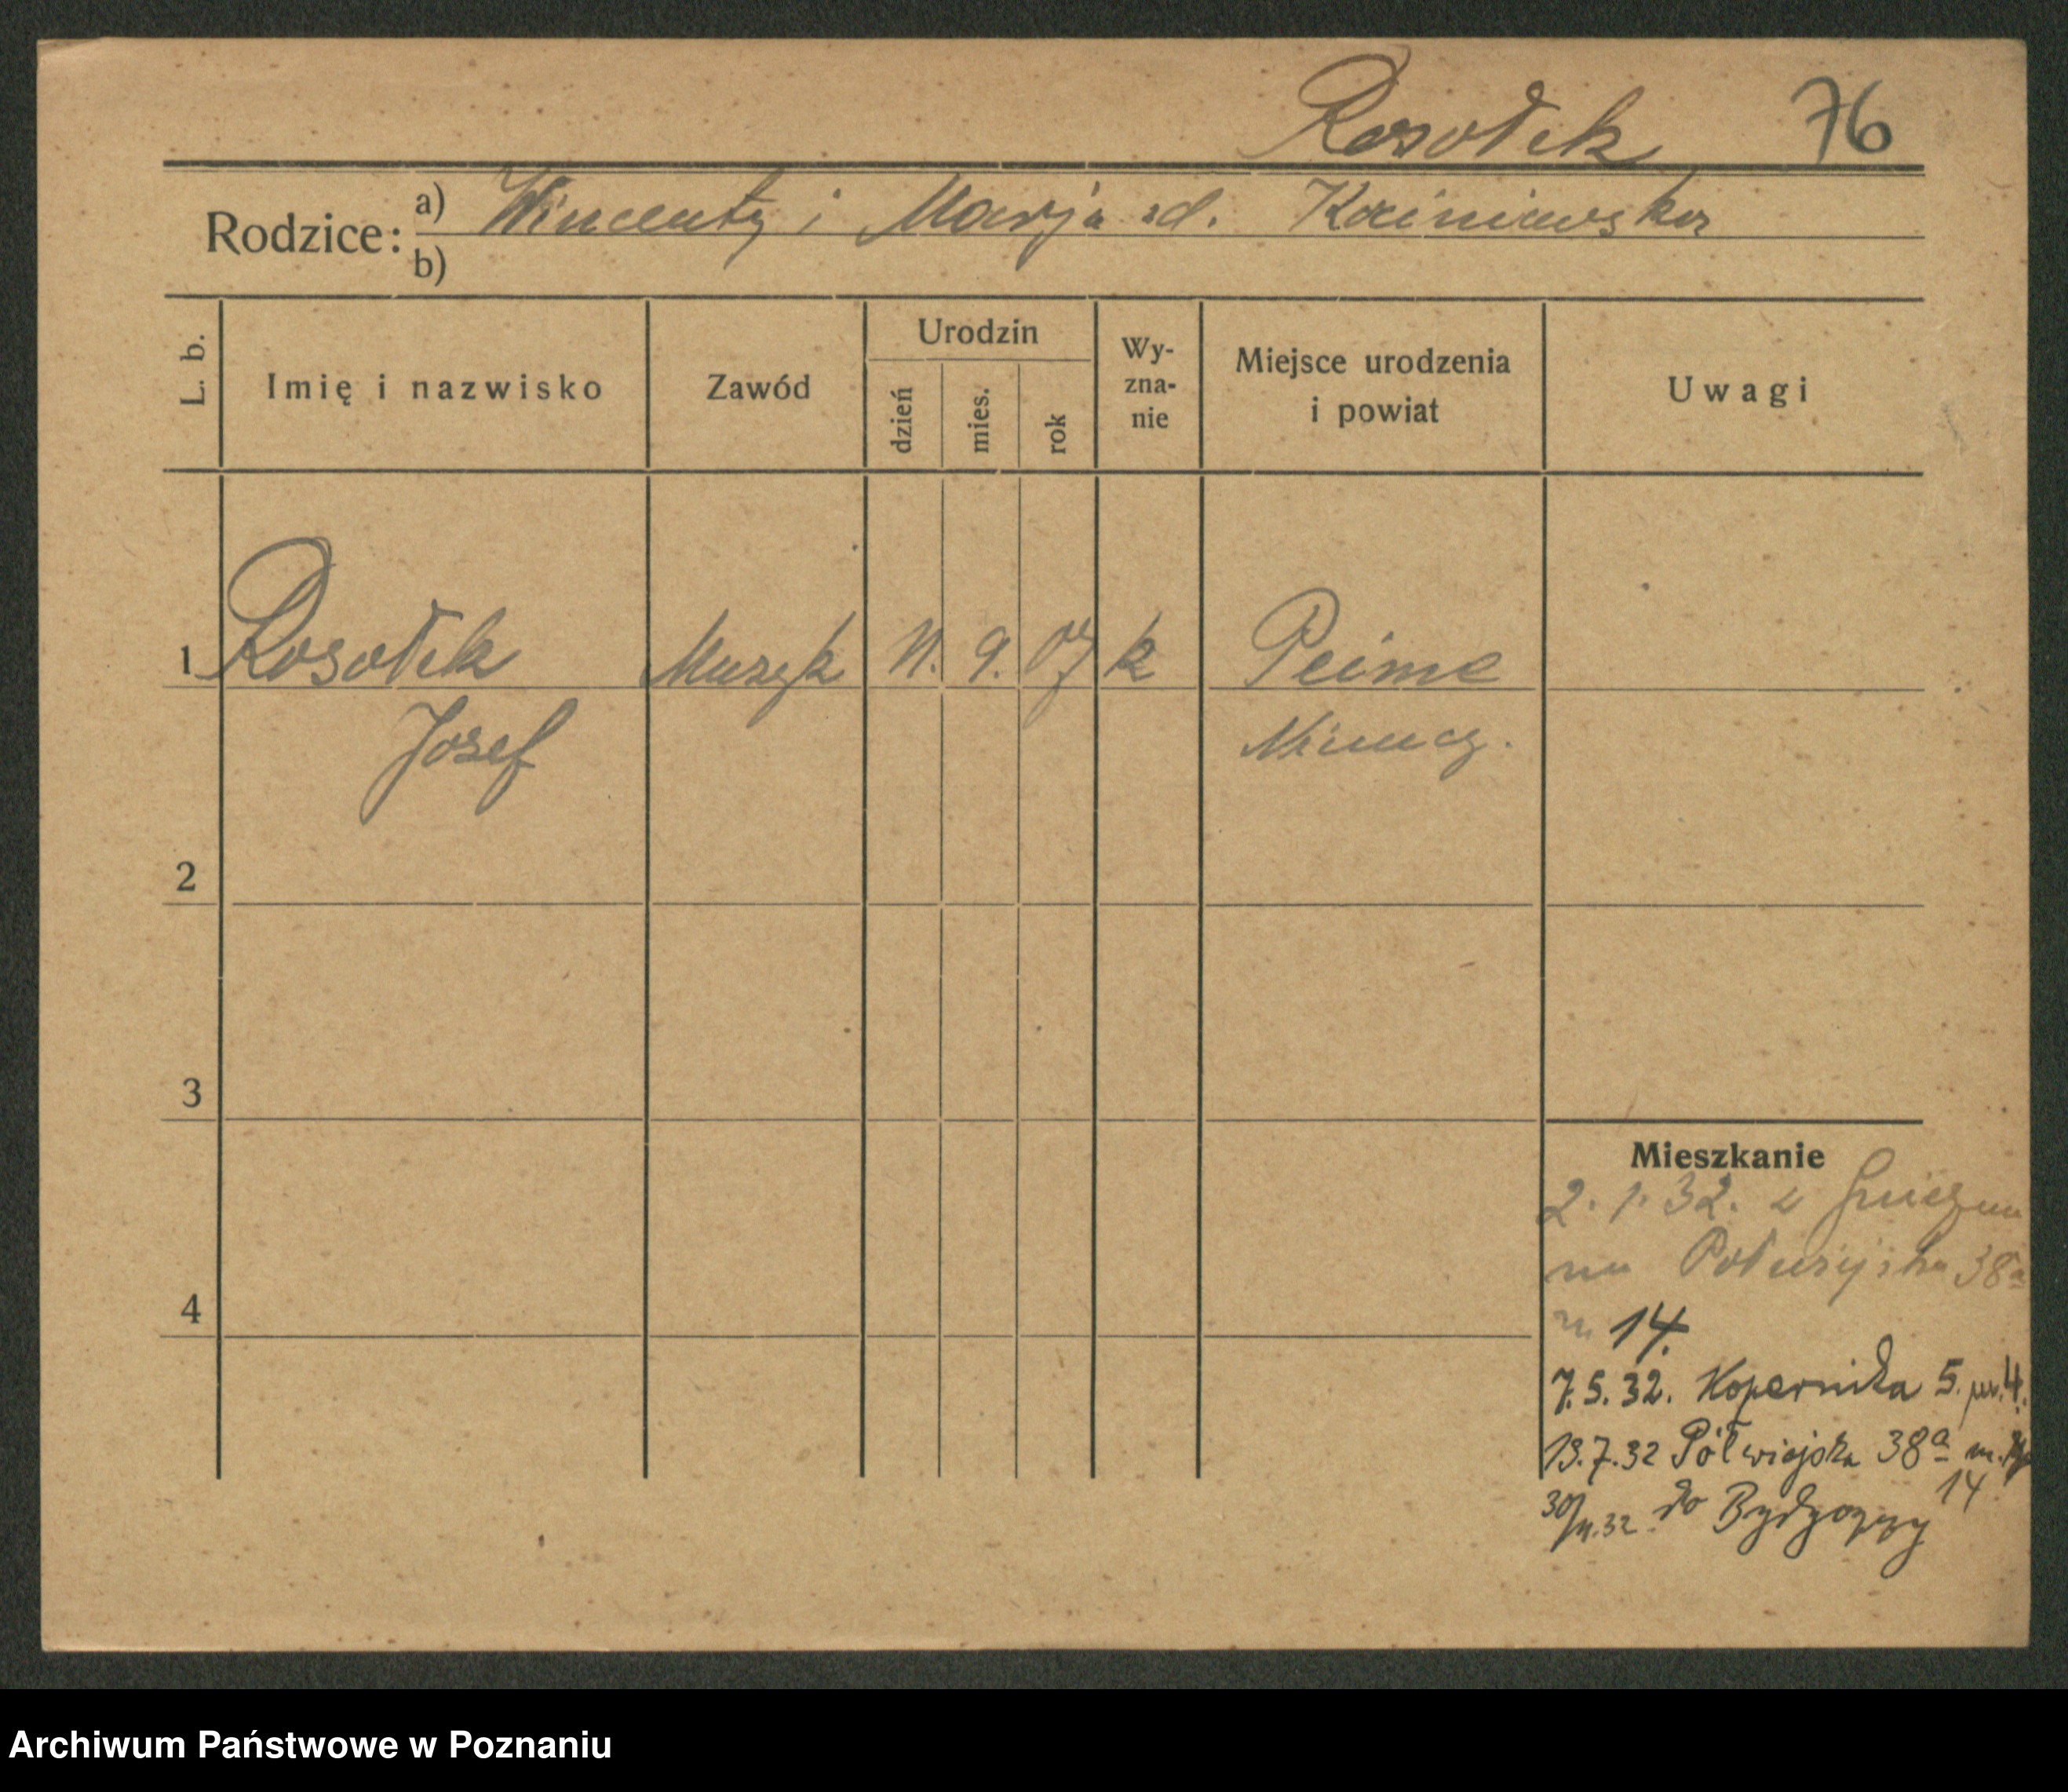 Rosołek 76
Rodzice: a) Wincenty i Marja zd. Kaźmierska
b)
L. b. Imię i nazwisko Zawód Urodzin dzień mies. rok Wy-zna-nie Miejsce urodzenia i powiat Uwagi
1 Rosołek Muzyk 11. 9. 07 k Peine
Josef Niemcy.
2
3
Mieszkanie
2. 1. 32. z Gniezna
na Półwiejska 38a
4
m 14.
7.5.32. Kopernika 5. m.4.
13.7.32 Półwiejska 38a m.
14
30/11.32. do Bydgoszczy
Archiwum Państwowe w Poznaniu